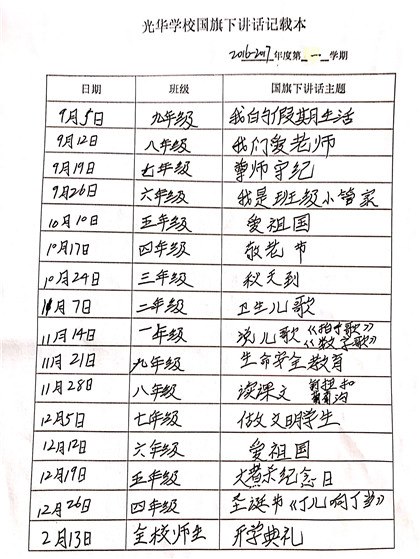 光华学校国旗下讲话记载本
2016-2017年度第一学期
日期 班级 国旗下讲话主题
9月5日 九年级 我的假期生活
9月12日 八年级 我们爱老师
9月19日 七年级 尊师守纪
9月26日 六年级 我是班级小管家
10月10日 五年级 爱祖国
10月17日 四年级 敬老节
10月24日 三年级 秋天到
11月7日 二年级 卫生儿歌
11月14日 一年级 说儿歌《拍手歌》《数字歌》
11月21日 九年级 生命安全教育
11月28日 八年级 读课文
12月5日 七年级 做文明学生
12月12日 六年级 爱祖国
12月19日 五年级 纪念日
12月26日 四年级 圣诞节《叮儿响叮当》
2月13日 全校师生 开学典礼